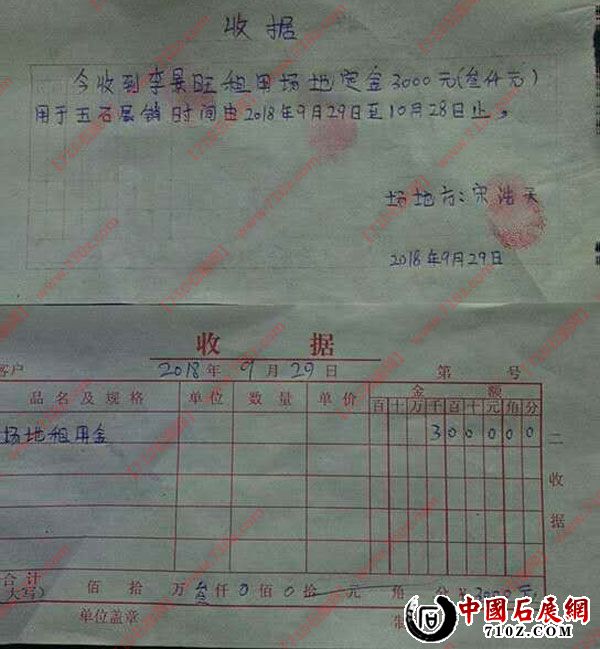 收据
今收到李景旺租用场地定金3000元(叁仟元)
用于玉石展销时间由2018年9月29日至10月28日止。
场地方:宋浩天
2018年9月29日
收 据
客户 2018年 9月29日 第 号
品名及规格 单位 数量 单价 金额
百十万千百十元角分
场地租用金 300000
二收据
合计(大写) 佰 拾 万叁仟0佰0拾 元 角 分 ¥3000元
单位盖章
中國石展網
710Z.COM